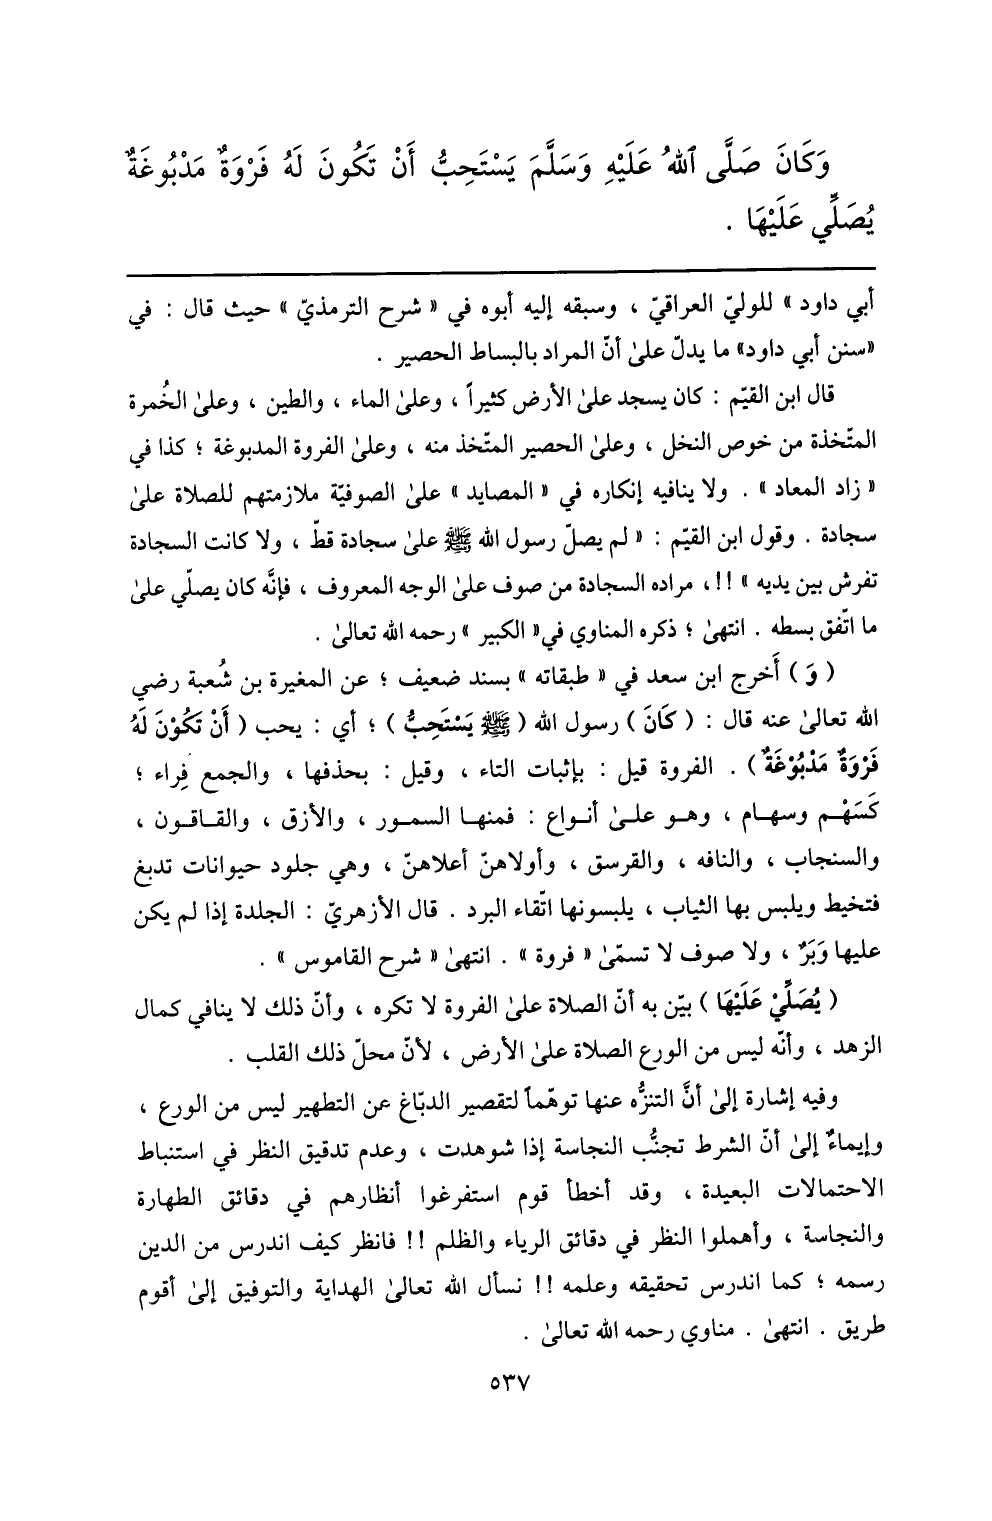 وَكَانَ صَلَّى ٱللهُ عَلَيْهِ وَسَلَّمَ يَسْتَحِبُّ أَنْ تَكُونَ لَهُ فَرْوَةٌ مَدْبُوغَةٌ
يُصَلِّي عَلَيْهَا .
أبي داود » للوليّ العراقيّ ، وسبقه إليه أبوه في « شرح الترمذيّ » حيث قال : في
«سنن أبي داود» ما يدلّ علىٰ أنّ المراد بالبساط الحصير .
قال ابن القيّم : كان يسجد علىٰ الأرض كثيراً ، وعلىٰ الماء ، والطين ، وعلىٰ الخُمرة
المتّخذة من خوص النخل ، وعلىٰ الحصير المتّخذ منه ، وعلىٰ الفروة المدبوغة ؛ كذا في
« زاد المعاد » . ولا ينافيه إنكاره في « المصايد » علىٰ الصوفيّة ملازمتهم للصلاة علىٰ
سجادة . وقول ابن القيّم : « لم يصلّ رسول الله ﷺ علىٰ سجادة قطّ ، ولا كانت السجادة
تفرش بين يديه » !!، مراده السجادة من صوف علىٰ الوجه المعروف ، فإنَّه كان يصلّي علىٰ
ما اتّفق بسطه . انتهىٰ ؛ ذكره المناوي في« الكبير » رحمه الله تعالىٰ .
( وَ ) أَخرج ابن سعد في « طبقاته » بسند ضعيف ؛ عن المغيرة بن شُعبة رضي
الله تعالىٰ عنه قال : ( كَانَ ) رسول الله ( ﷺ يَسْتَحِبُّ ) ؛ أي : يحب ( أَنْ تَكُوْنَ لَهُ
فَرْوَةٌ مَدْبُوْغَةٌ ) . الفروة قيل : بإثبات التاء ، وقيل : بحذفها ، والجمع فِراء ؛
كَسَهْم وسهام ، وهو علىٰ أنواع : فمنها السمور ، والأزق ، والقاقون ،
والسنجاب ، والنافه ، والقرسق ، وأولاهنّ أعلاهنّ ، وهي جلود حيوانات تدبغ
فتخيط ويلبس بها الثياب ، يلبسونها اتّقاء البرد . قال الأزهريّ : الجلدة إذا لم يكن
عليها وَبَرٌ ، ولا صوف لا تسمّىٰ « فروة » . انتهىٰ « شرح القاموس » .
( يُصَلِّيْ عَلَيْهَا ) بيّن به أنّ الصلاة علىٰ الفروة لا تكره ، وأنّ ذلك لا ينافي كمال
الزهد ، وأنّه ليس من الورع الصلاة علىٰ الأرض ، لأنّ محلّ ذلك القلب .
وفيه إشارة إلىٰ أنَّ التنزُّه عنها توهّماً لتقصير الدبّاغ عن التطهير ليس من الورع ،
وإيماءٌ إلىٰ أنّ الشرط تجنُّب النجاسة إذا شوهدت ، وعدم تدقيق النظر في استنباط
الاحتمالات البعيدة ، وقد أخطأ قوم استفرغوا أنظارهم في دقائق الطهارة
والنجاسة ، وأهملوا النظر في دقائق الرياء والظلم !! فانظر كيف اندرس من الدين
رسمه ؛ كما اندرس تحقيقه وعلمه !! نسأل الله تعالىٰ الهداية والتوفيق إلىٰ أقوم
طريق . انتهىٰ . مناوي رحمه الله تعالىٰ .
٥٣٧